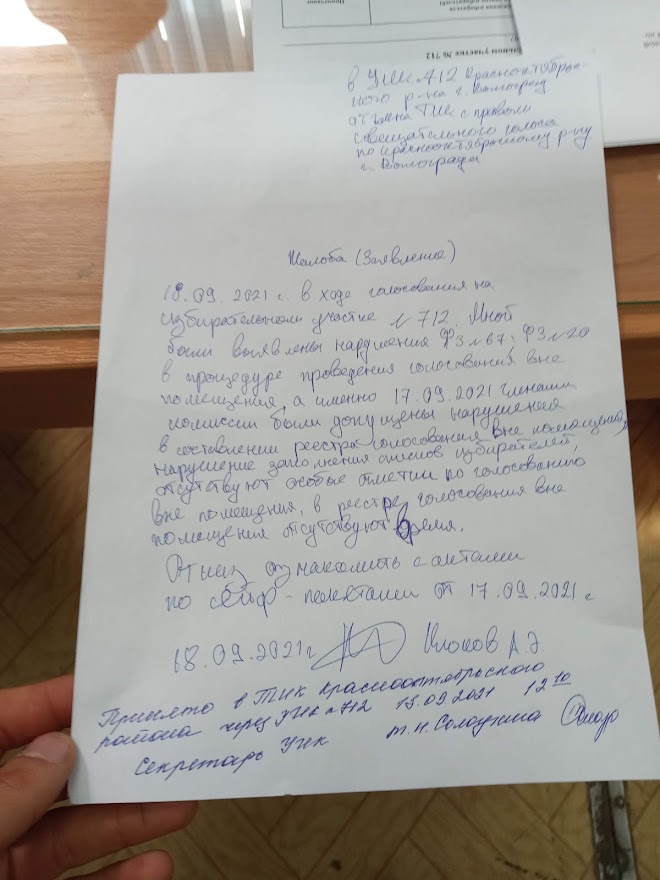 бном участке № 712
в УИК №712 Краснооктябрьс-
кого р-на г. Волгоград
от члена ТИК с правом
совещательного голоса
по Краснооктябрьскому р-ну
г. Волгограда
Жалоба (Заявление)
18.09.2021 г. в ходе голосования на
избирательном участке №712. Мной
были выявлены нарушения ФЗ №67; ФЗ №20
в процедуре проведения голосования вне
помещения, а именно 17.09.2021 членами
комиссии были допущены нарушения
в составлении реестра голосования вне помещения,
нарушение заполнения списков избирателей,
отсутствуют особые отметки по голосованию
вне помещения, в реестре голосования вне
помещения отсутствуют время.
Отказ ознакомить с актами
по сейф-пакетами от 17.09.2021 г
18.09.2021 г Клоков А.Э.
Принято в ТИК Краснооктябрьского
района через УИК №712 18.09.2021 12 10
Секретарь УИК Т.Н. Солодкина